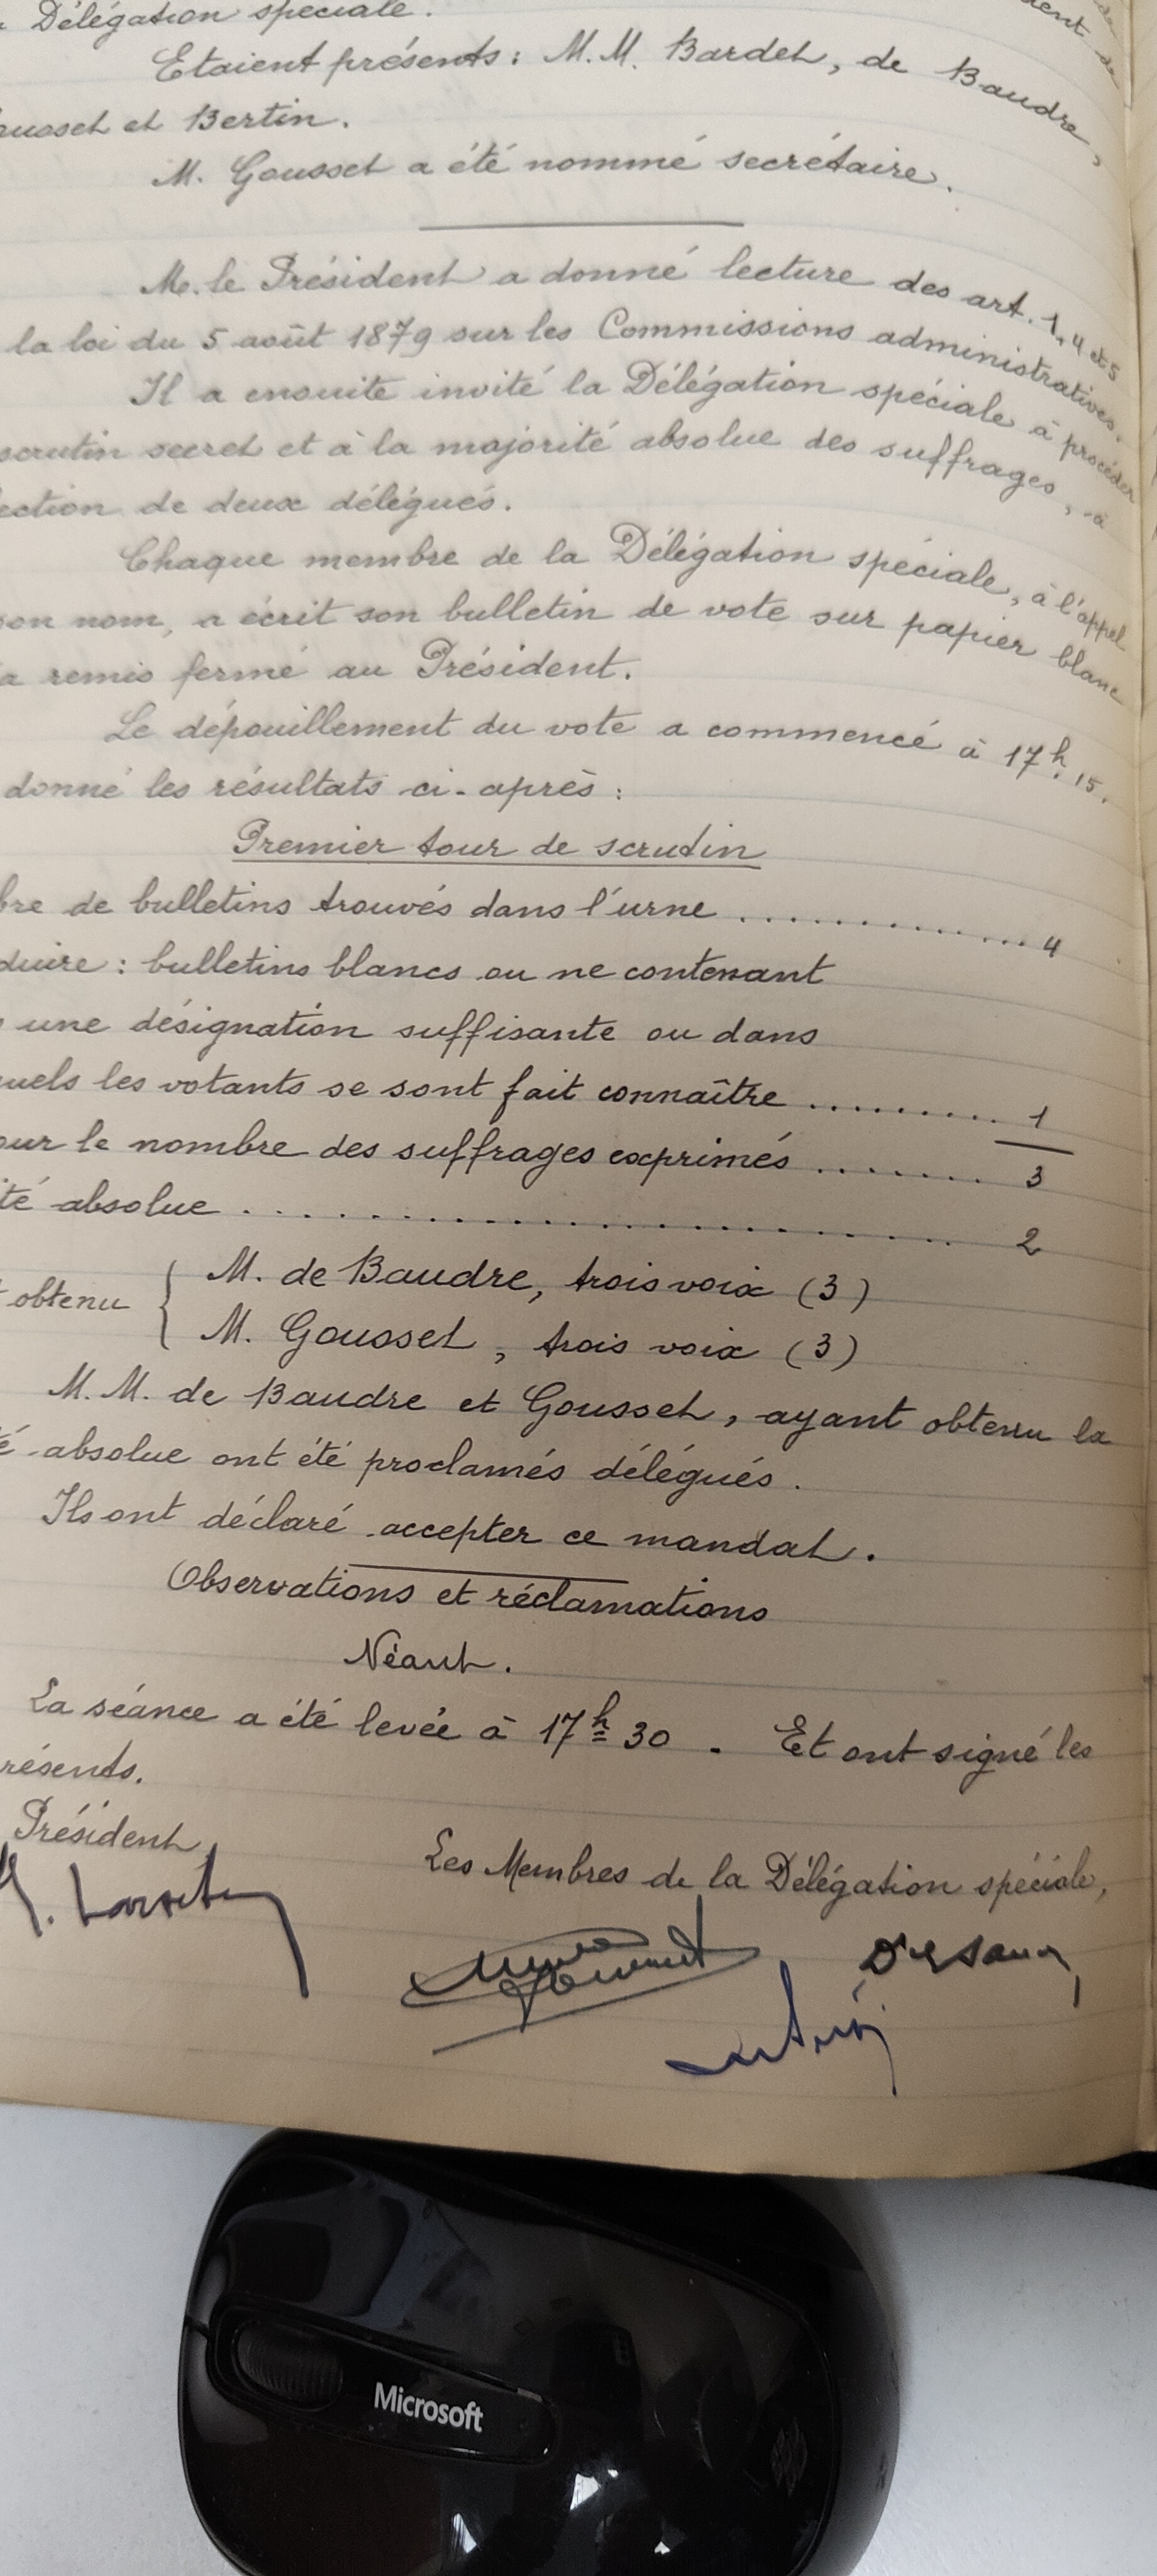 Délégation spéciale.
Etaient présents : M.M. Bardet, de Baudre,
ousset et Bertin.
M. Gousset a été nommé secrétaire.
M. le Président a donné lecture des art. 1, 4 et 5
la loi du 5 août 1879 sur les Commissions administratives.
Il a ensuite invité la Délégation spéciale à procéder
scrutin secret et à la majorité absolue des suffrages, à
ection de deux délégués.
Chaque membre de la Délégation spéciale, à l'appel
son nom, a écrit son bulletin de vote sur papier blanc
a remis fermé au Président.
Le dépouillement du vote a commencé à 17h.15.
donné les résultats ci-après :
Premier tour de scrutin
bre de bulletins trouvés dans l'urne ............... 4
duire : bulletins blancs ou ne contenant
une désignation suffisante ou dans
quels les votants se sont fait connaître ......... 1
our le nombre des suffrages exprimés ....... 3
ité absolue ......................... 2
obtenu { M. de Baudre, trois voix (3)
M. Gousset, trois voix (3)
M.M. de Baudre et Gousset, ayant obtenu la
é absolue ont été proclamés délégués.
Ils ont déclaré accepter ce mandat.
Observations et réclamations
Néant.
La séance a été levée à 17h 30. Et ont signé les
résents.
Président
Les Membres de la Délégation spéciale,
Microsoft